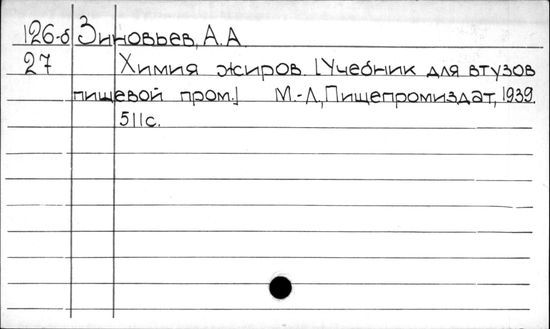 126-б Зиновьев, А.А.
27 Химия жиров. [Учебник для втузов
пищевой пром.] М.-Л., Пищепромиздат, 1939.
511с.